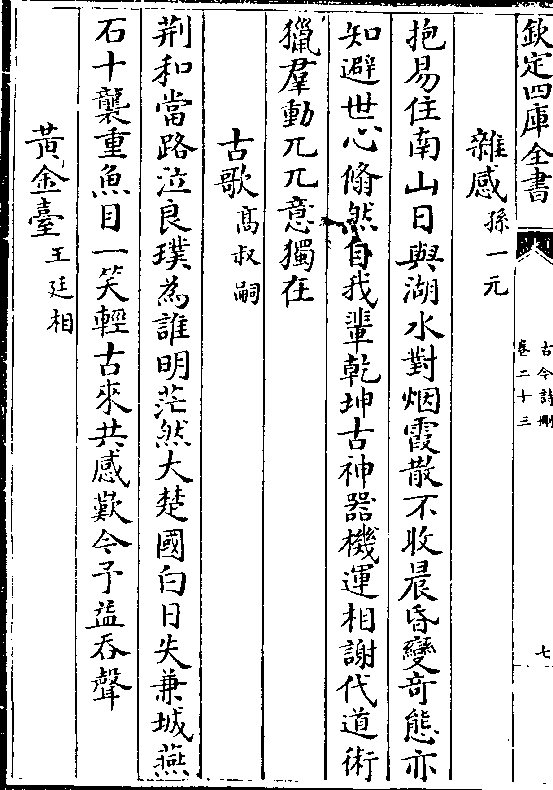 欽定四庫全書
古今詩刪
卷二十三
七
雜感孫一元
抱易住南山日與湖水對烟霞散不收晨昏變奇態亦
知避世心翛然自我輩乾坤古神器機運相謝代道術
獵羣動兀兀意獨在
古歌高叔嗣
荆和當路泣良璞為誰明茫然大楚國白日失兼城燕
石十襲重魚目一笑輕古來共感歎今予益吞聲
黃金臺王廷相